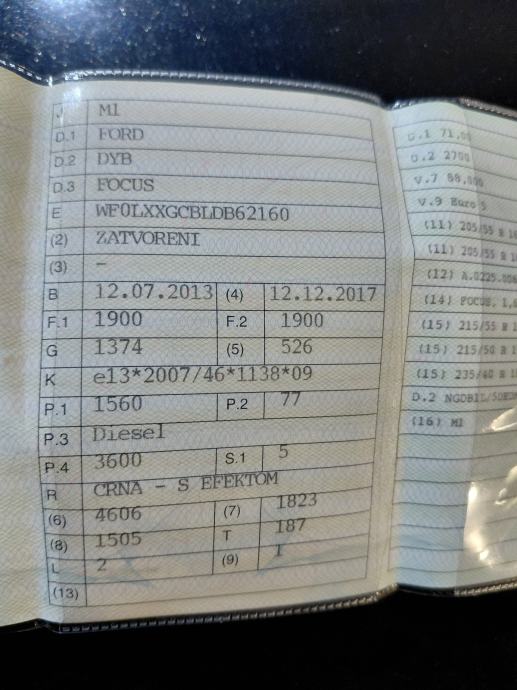 J MI
D.1 FORD
D.2 DYB
D.3 FOCUS
E WF0LXXGCBLDB62160
(2) ZATVORENI
(3) -
B 12.07.2013 (4) 12.12.2017
F.1 1900 F.2 1900
G 1374 (5) 526
K e13*2007/46*1138*09
P.1 1560 P.2 77
P.3 Diesel
P.4 3600 S.1 5
R CRNA - S EFEKTOM
(6) 4606 (7) 1823
(8) 1505 T 187
L 2 (9) 1
(13)
U.1 71,00
U.2 2700
V.7 88,000
V.9 Euro 5
(11) 205/55 R 16
(11) 205/55 R 16
(12) A.0225.006
(14) FOCUS, 1,6
(15) 215/55 R 1
(15) 215/50 R 1
(15) 235/40 R 1
(16) MI